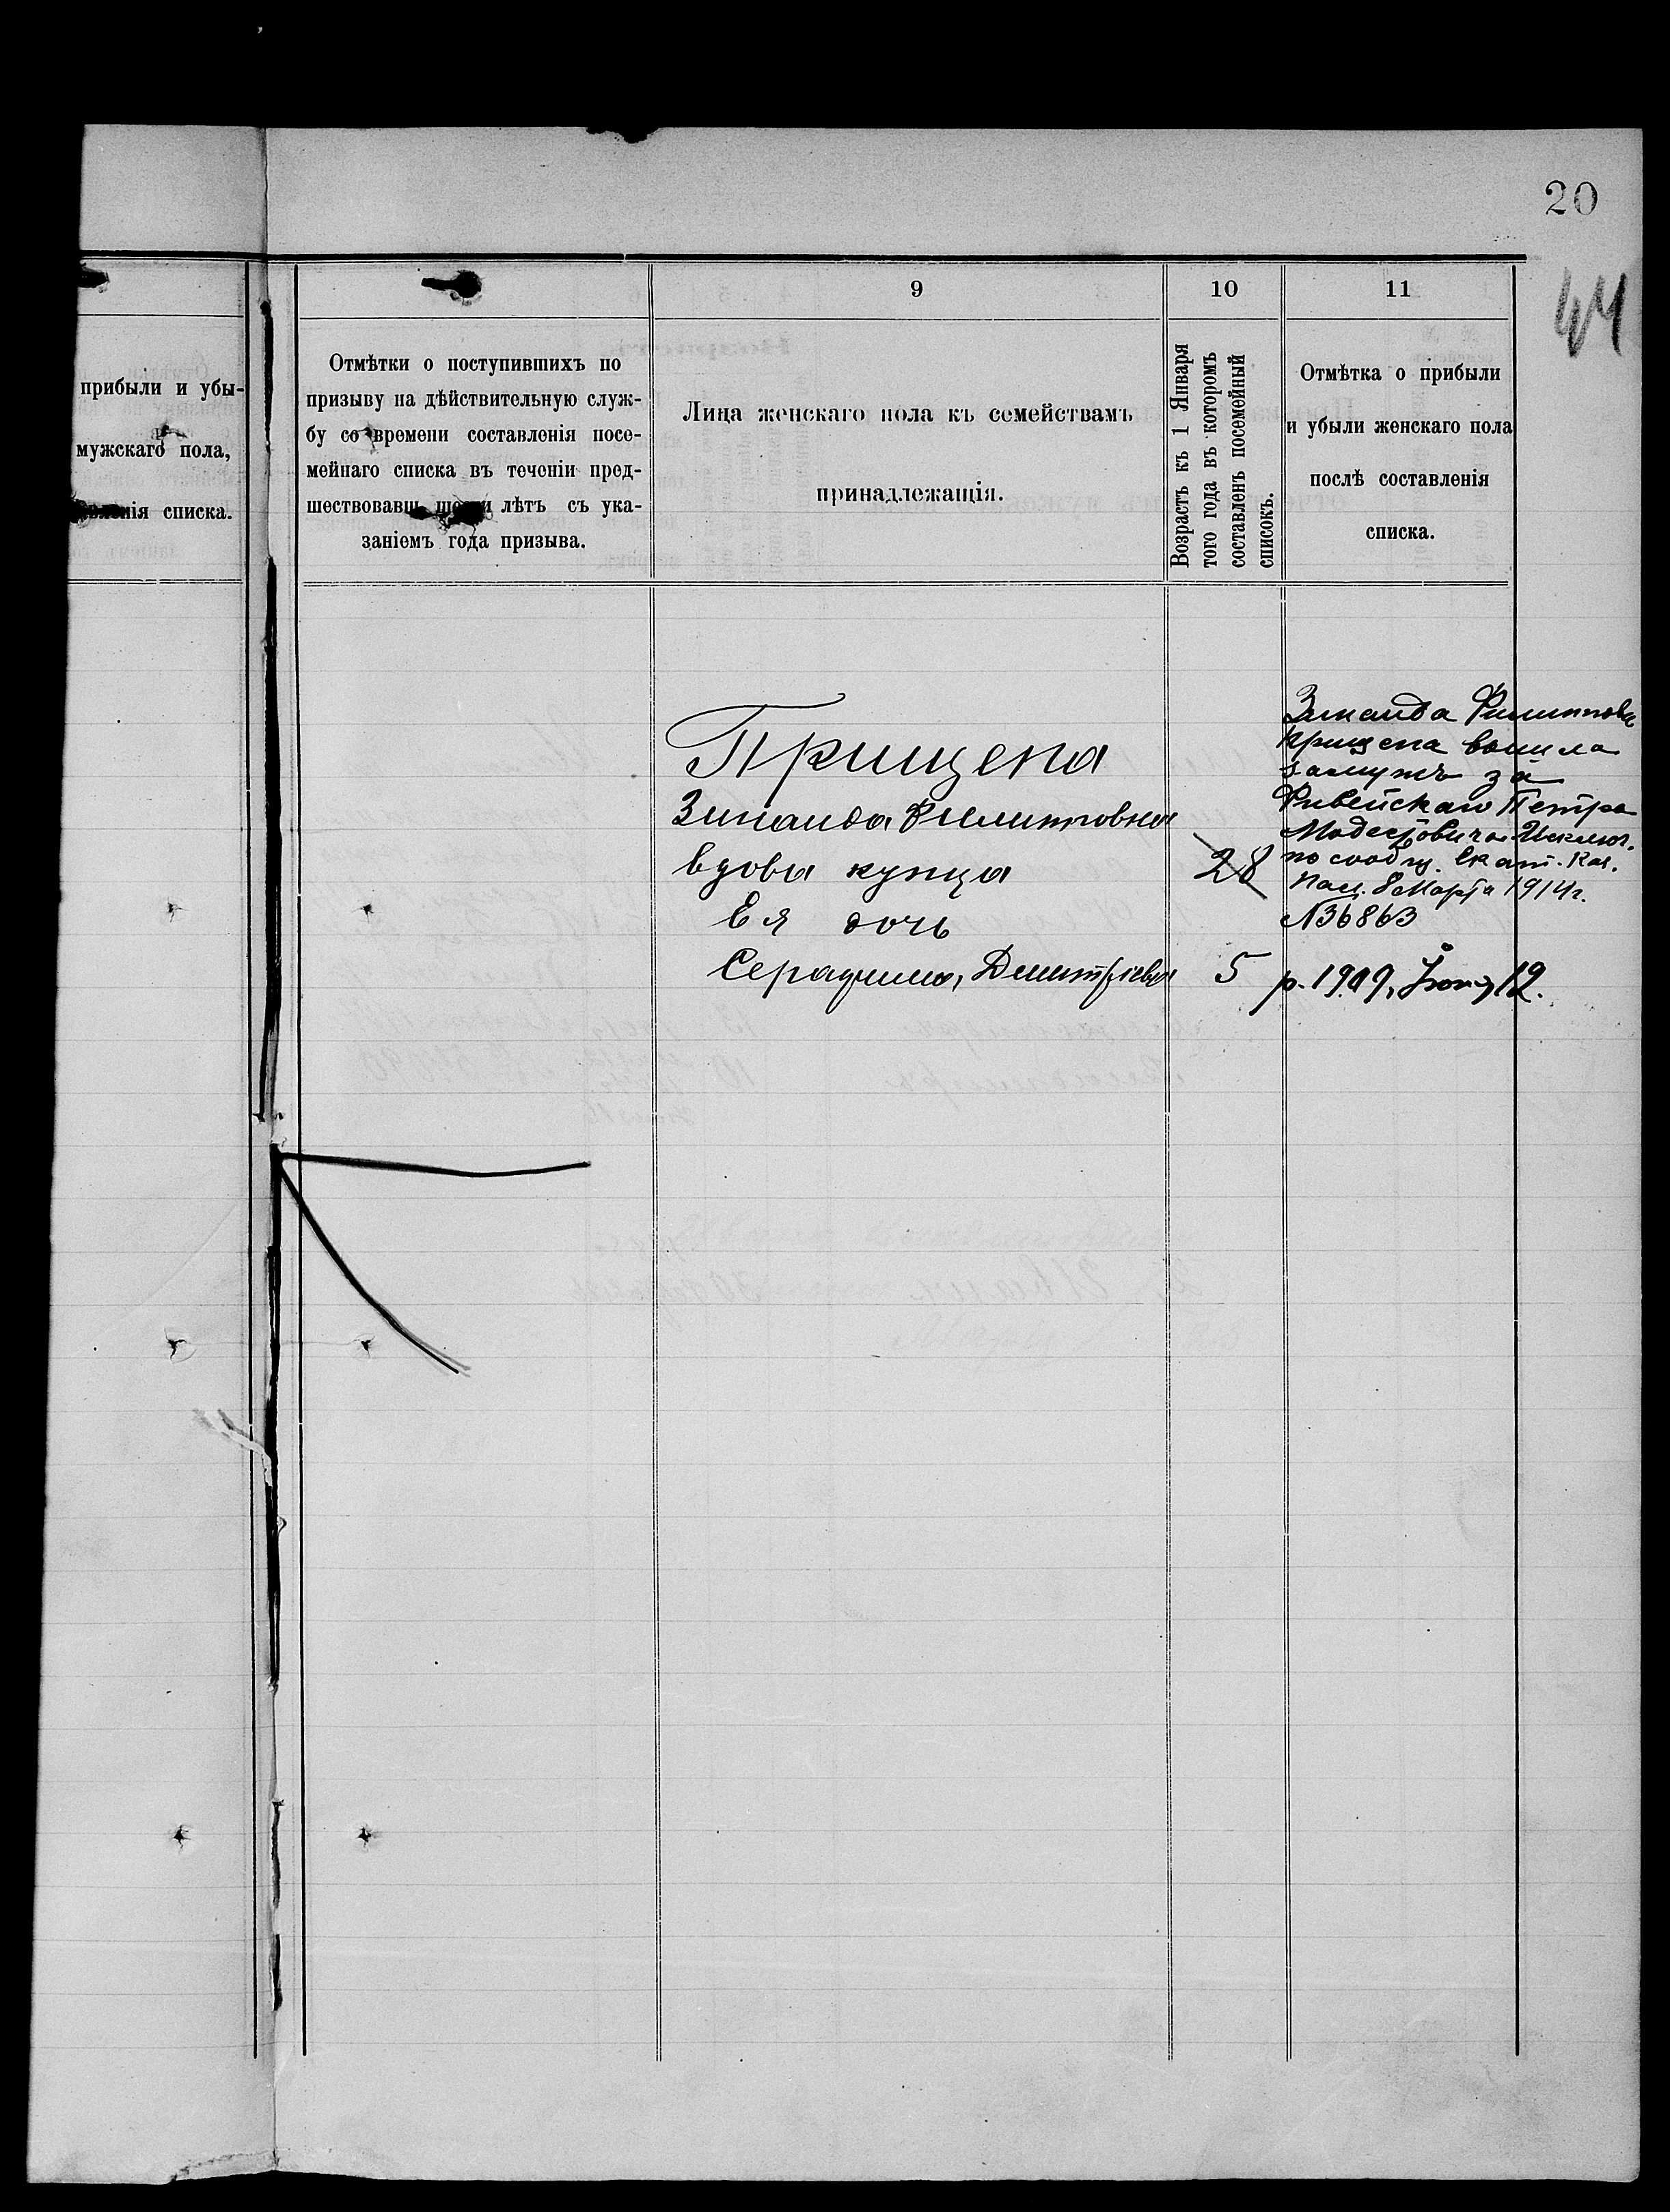 20
44
9
10
11
прибыли и убы-
мужскаго пола,
списка.
Отмѣтки о поступившихъ по
призыву на дѣйствительную служ-
бу со времени составленія посе-
мейнаго списка въ теченіи пред-
шествовавш. лѣтъ съ ука-
заніемъ года призыва.
Лица женскаго пола къ семействамъ
принадлежащія.
Возрастъ къ 1 Января
того года въ которомъ
составленъ посемейный
списокъ.
Отмѣтка о прибыли
и убыли женскаго пола
послѣ составленія
списка.
Прищепа
Зинаида Филипповна
вдова купца
28
Ея дочь
Серафима, Дмитріева
5
Зинаида Филиппова
Прищепа вышла
замужъ за
Петра
Модестовича. Исключ.
по сообщ. Екат. Каз.
Пал. 8 Марта 1914 г.
№36863
р. 1909, 12.